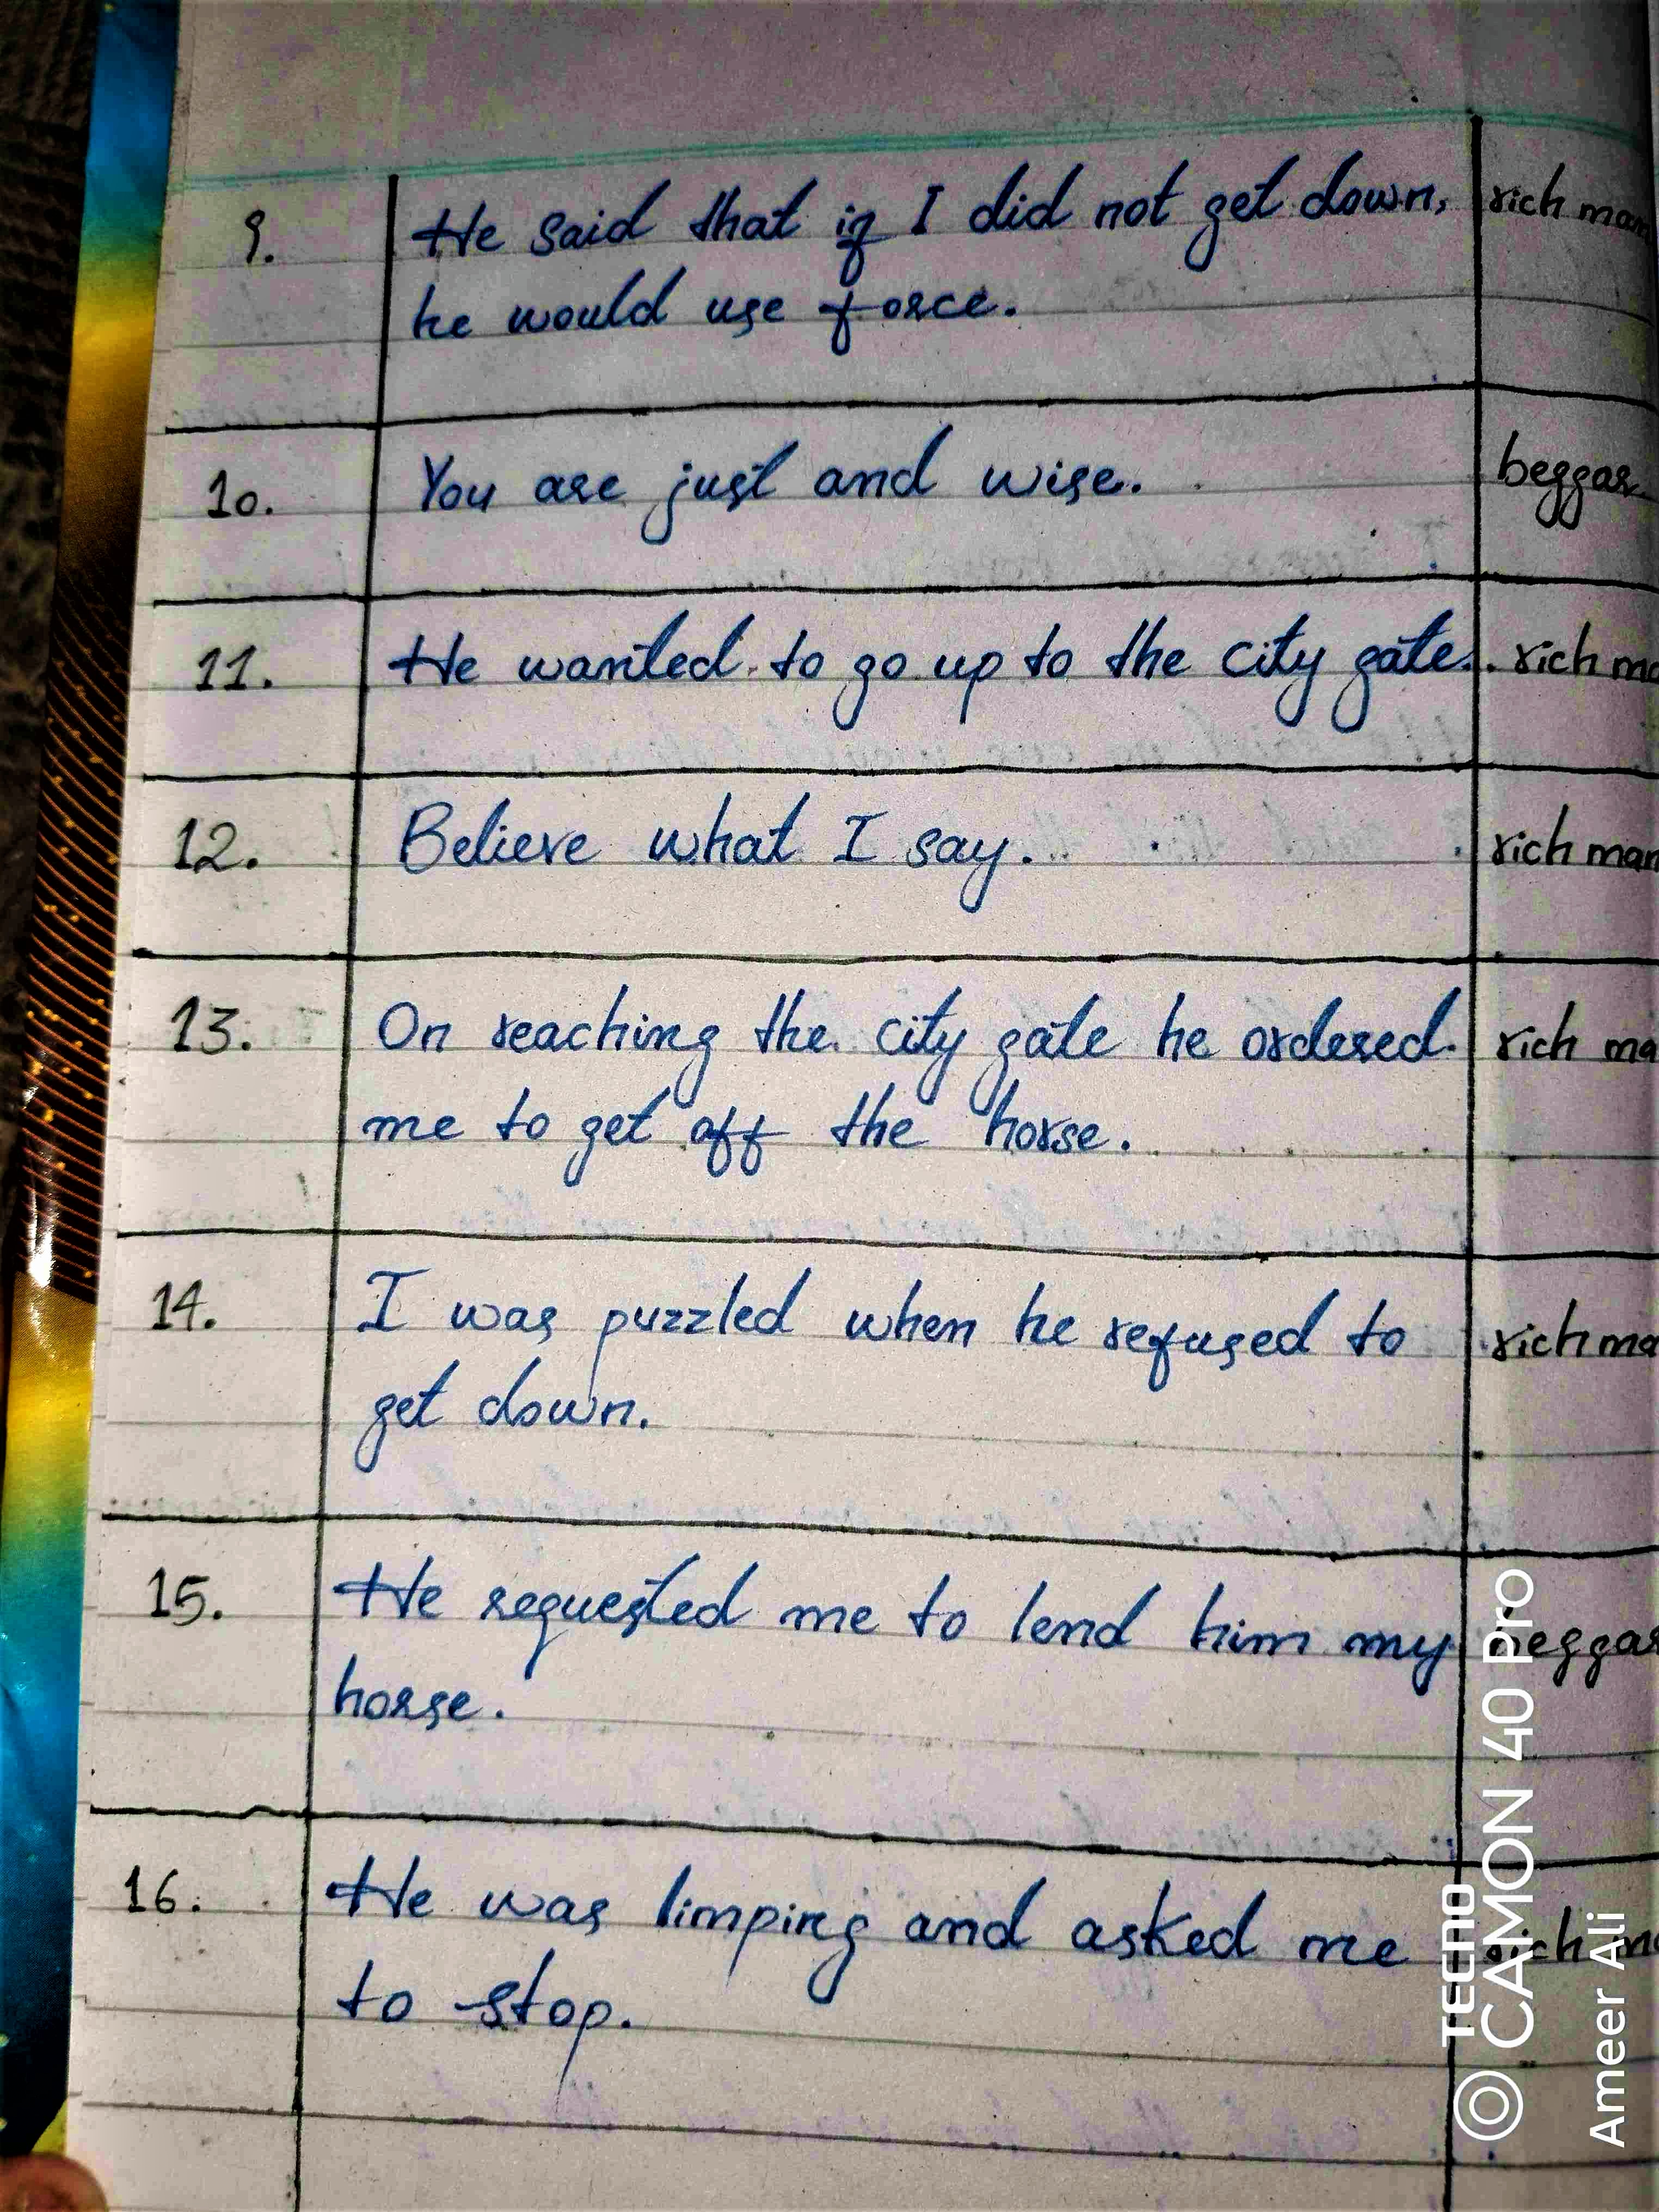 9. He said that if I did not get down, rich man
he would use force.
10. You are just and wise. beggar
11. He wanted to go up to the city gate. rich ma
12. Believe what I say. rich man
13. On reaching the city gate he ordered rich ma
me to get off the horse.
14. I was puzzled when he refused to rich ma
get down.
15. He requested me to lend him my beggar
horse.
16. He was limping and asked me rich m
to stop.
TECNO
CAMON 40 Pro
Ameer Ali